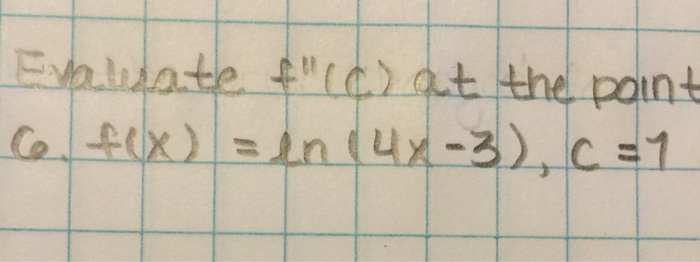 Evaluate f"(c) at the point
6. f(x) = ln(4x-3), c=1